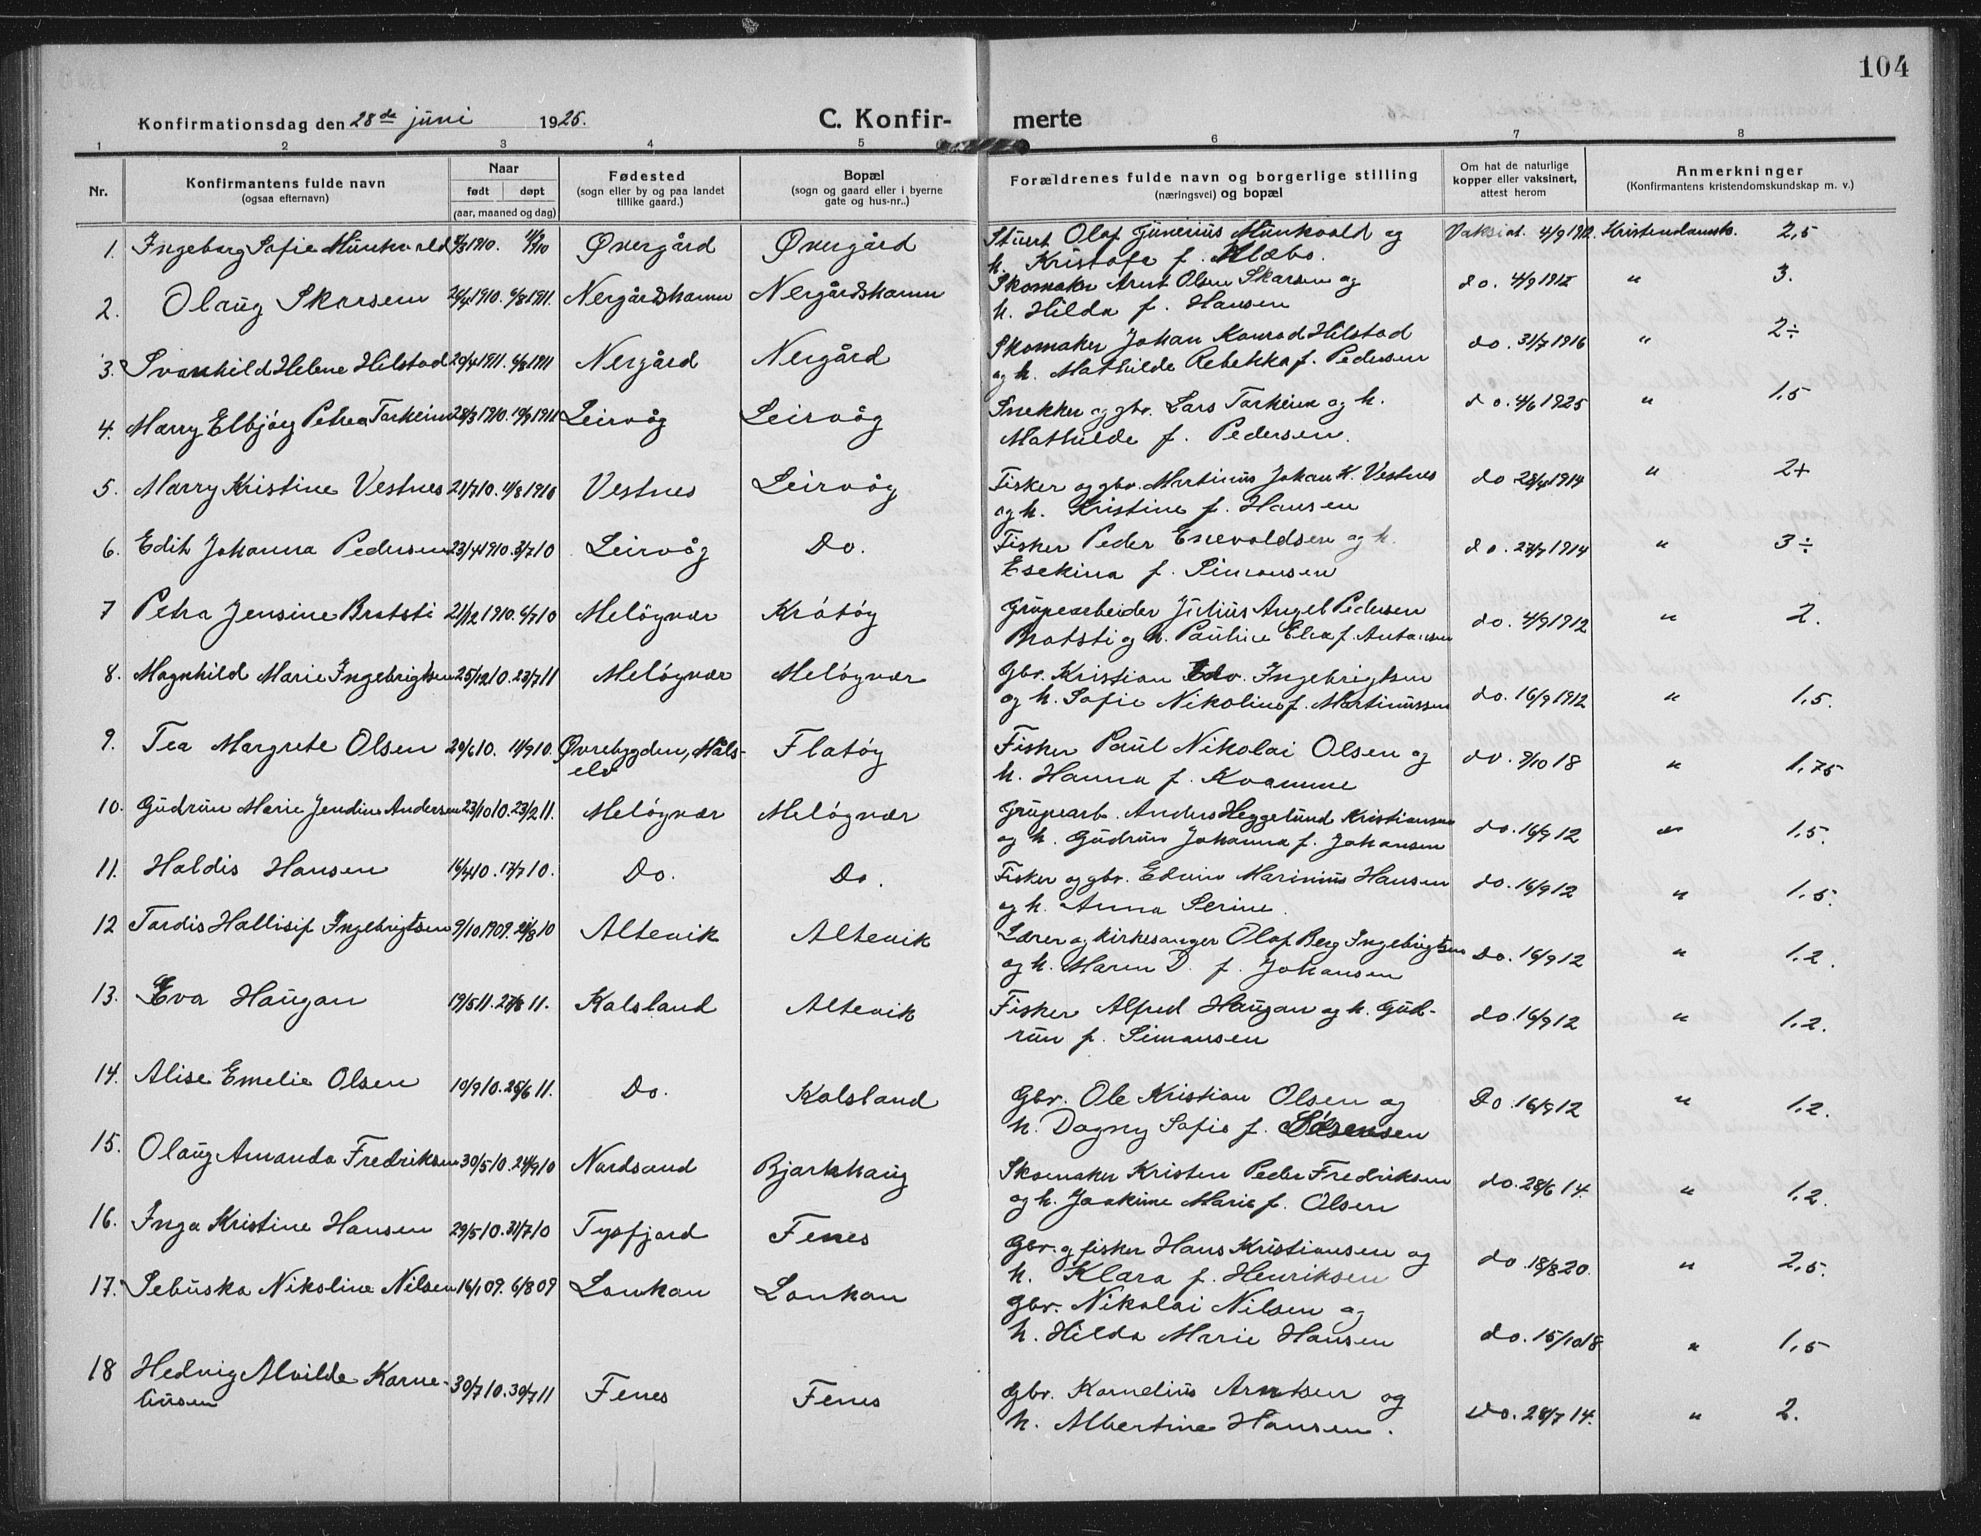 104
Konfirmationsdag den 28de juni 1925.
C. Konfir- merte
1 2 3 4 5 6 7 8
Nr.
Konfirmantens fulde navn
(ogsaa efternavn)
Naar
født døpt
(aar, maaned og dag)
Fødested
(sogn eller by og paa landet
tillike gaard.)
Bopæl
(sogn og gaard eller i byerne
gate og hus-nr..)
Forældrenes fulde navn og borgerlige stilling
(næringsvei) og bopæl
Om hat de naturlige
kopper eller vaksinert,
attest herom
Anmerkninger
(Konfirmantens kristendomskundskap m. v.)
1. Ingeborg Sofie Munkvold Øvergård Øvergård Stuert Olaf Junerius Munkvold og Vaksinat. 4/9 1912. Kristendomsk. 2,5
h. Kristofa f. Klæbo.
2. Olaug Skarsem 26/4 1910. 6/8 1911. Nergårdshamn Nergårdshamn Skomaker Arnt Olsen Skarsem og do. 4/9 1912 " 3.
h. Hilda f. Hansen
3. Svanhild Helene Hilstad 20/4 1911. 6/8 1911 Nergård Nergård Skomaker Johan Konrad Hilstad do. 31/7 1916 " 2÷
og h. Mathilde Rebekka f. Pedersen
4. Marry Elbjørg Petrea Torheim 28/3 1910. Leirvåg Leirvåg Snekker og gbr. Lars Torheim og h. do. 4/6 1925 " 1,5
Mathilde f. Pedersen.
5. Marry Kristine Vestnes 21/7 10. Vestnes Leirvåg Fisker og gbr. Martinus Johan K. Vestnes do 28/4 1914 " 2+
og h. Kristine f. Hansen
6. Edith Johanna Pedersen 23/4 1910. 3/7 10 Leirvåg Do. Fisker Peder Enevoldsen og h. do. 27/7 1914 " 3÷
Esekina f. Simonsen
7 Petra Jensine Bratsti 21/12 1910. 6/7 10 Meløyvær Krøtøy Grupearbeider Julius Angel Pedersen do. 4/9 1912 " 2.
Bratsti og h. Pauline Elea f. Antonsen
8. Magnhild Marie Ingebrigtsen 25/12 10. 23/7 11 Meløyvær Meløyvær Gbr. Kristian Edv. Ingebrigtsen
og h. Sofie Nikoline f. Martinussen do. 16/9 1912 " 1,5.
9. Tea Margrete Olsen 29/6 10. 11/9 10. Øvrebygden, Måls- Flatøy Fisker Paul Nikolai Olsen og do. 9/10 18 " 1,75
elv h. Hanna f. Kvamme
10. Gudrun Marie Jendine Andersen 23/10 10. 23/2 11. Meløyvær Meløyvær Grupearb. Anders Heggelund Kristiansen do. 16/9 12 " 1,5.
og h. Gudrun Johanna f. Johansen
11. Haldis Hansen 14/4 10. 17/7 10. Do. Do. Fisker og gbr. Edvin Marinius Hansen do. 16/9 12 " 1,5.
og h. Anna Serine.
12 Tordis Hallisif Ingebrigtsen 9/10 1909. 21/8 10 Altevik Altevik Lærer og kirkesanger Olaf Berg Ingebrigtsen Do. 16/9 12 " 1,2.
og h. Maren D. f. Johansen
13. Eva Haugan 19/5 11. 27/8 11. Kalsland Altevik Fisker Alfred Haugan og h. Gud- do. 16/9 12 " 1,2.
run f. Simonsen
14. Alise Emelie Olsen 10/9 10. 25/6 11. Do. Kalsland Gbr. Ole Kristian Olsen og Do. 16/9 12 " 1,2.
h. Dagny Sofie f. Sørensen
15. Olaug Amanda Fredriksen 30/5 10. 24/9 10 Nordsand Bjarkhaug Skomaker Kristen Peder Fredriksen do. 28/6 14. " 1,2.
og h. Joakime Marie f. Olsen
16. Inga Kristine Hansen 29/5 10. 31/7 10 Tysfjord Fenes Gbr. og fisker Hans Kristiansen og do 18/8 20. " 2,5.
h. Klara f. Henriksen
17. Sebuska Nikoline Nilsen 16/1 09. 6/8 09 Lonkan Lonkan Gbr. Nikolai Nilsen og
h. Hilda Marie Hansen do. 15/10 18 " 1,5
18 Hedvig Alvilde Korne- 30/7 10. 30/7 11 Fenes Fenes Gbr. Kornelius Arntsen og Do. 28/7 14. " 2.
liusen h. Albertine Hansen.